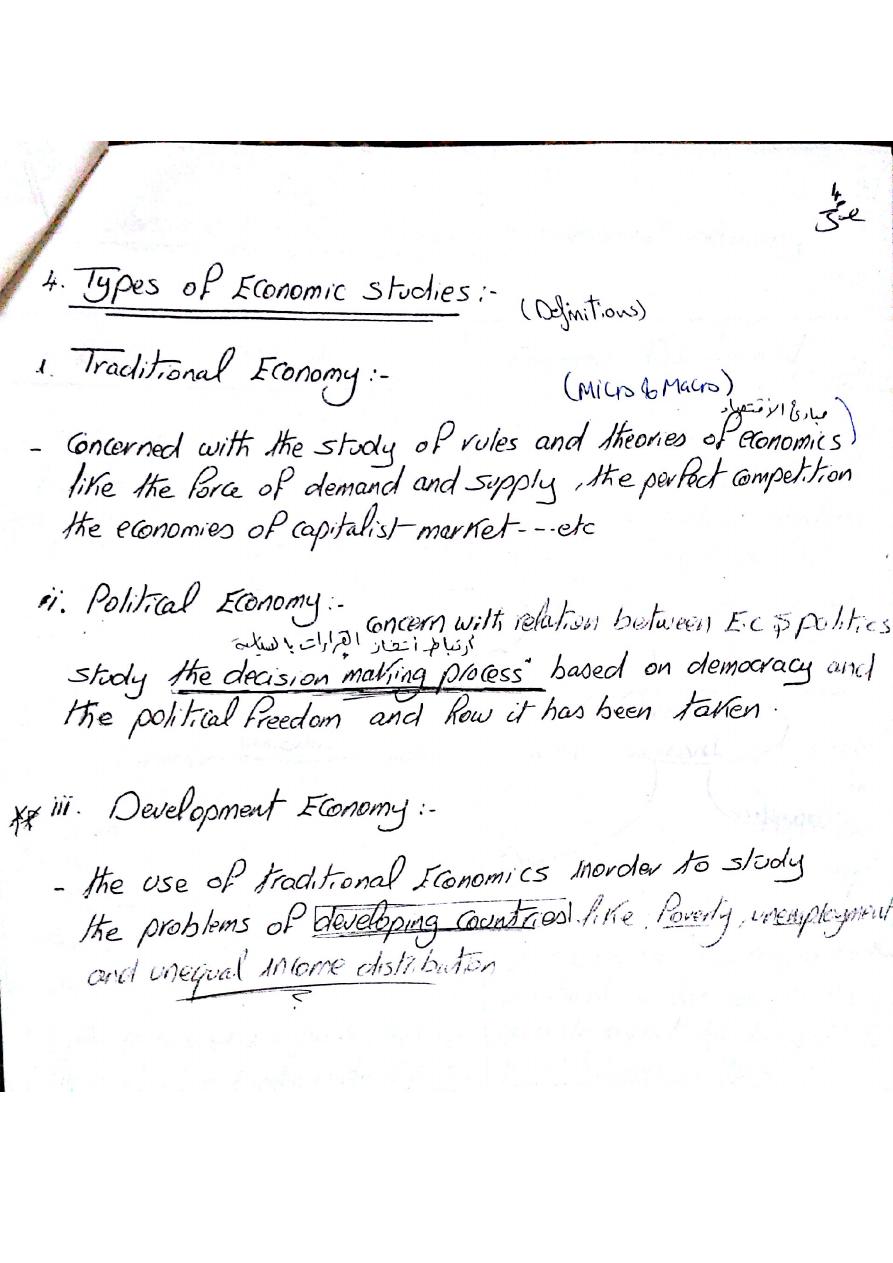 4
4. Types of Economic studies :- (Definitions)
i. Traditional Economy :- (Micro & Macro)
مبادئ الاقتصاد
- Concerned with the study of rules and theories of economics
like the force of demand and supply, the perfect competition
the economies of capitalist market---etc
ii. Political Economy :-
concern with relation between Ec & politics
ارتباط اتخاذ القرارات بالسياسة
study the decision making process" based on democracy and
the political freedom and how it has been taken.
** iii. Development Economy :-
- the use of traditional Economics inorder to study
the problems of developing countries. like Poverty, unemployment
and unequal income distribution
؟